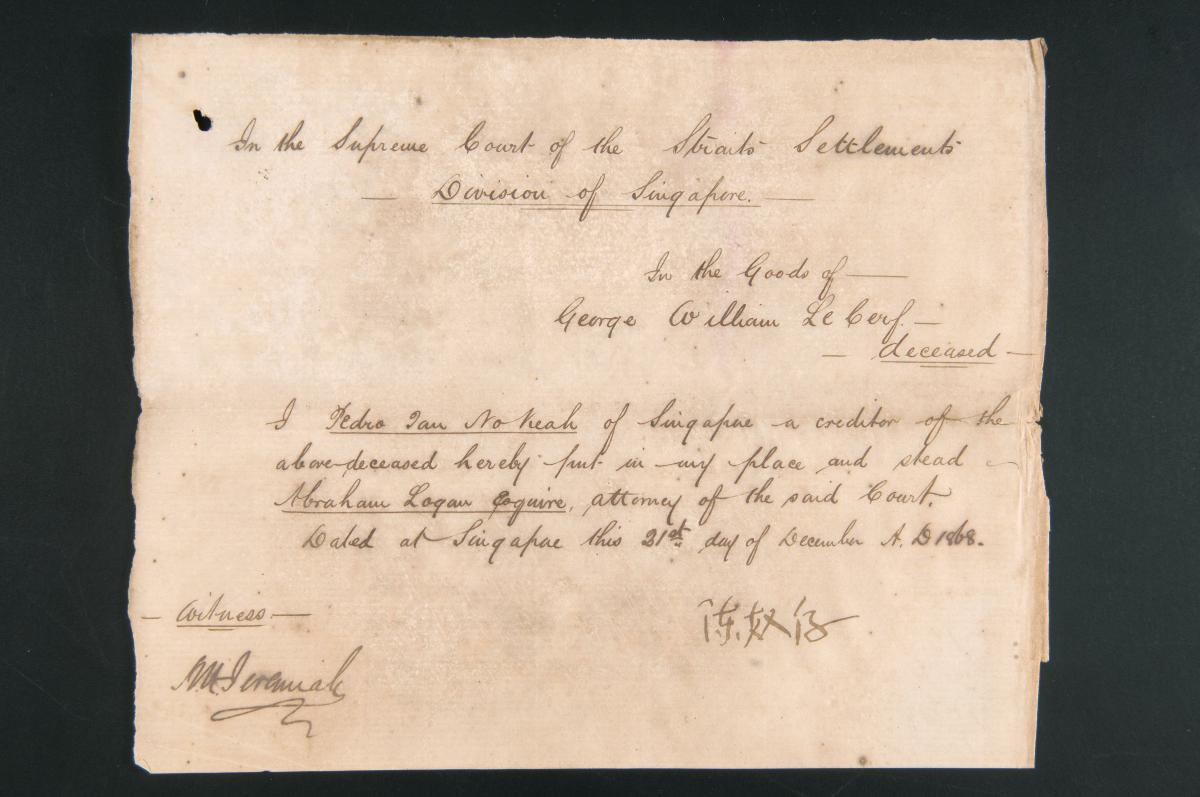 In the Supreme Court of the Straits Settlements
— Division of Singapore. —
In the Goods of —
George William Le Cerf. —
— deceased —
I Pedro Tan No Keah of Singapore a creditor of the
above deceased hereby put in my place and stead
Abraham Logan Esquire, attorney of the said Court.
Dated at Singapore this 31st day of December A. D 1868.
— Witness —
陈奴仔
Jeremiah